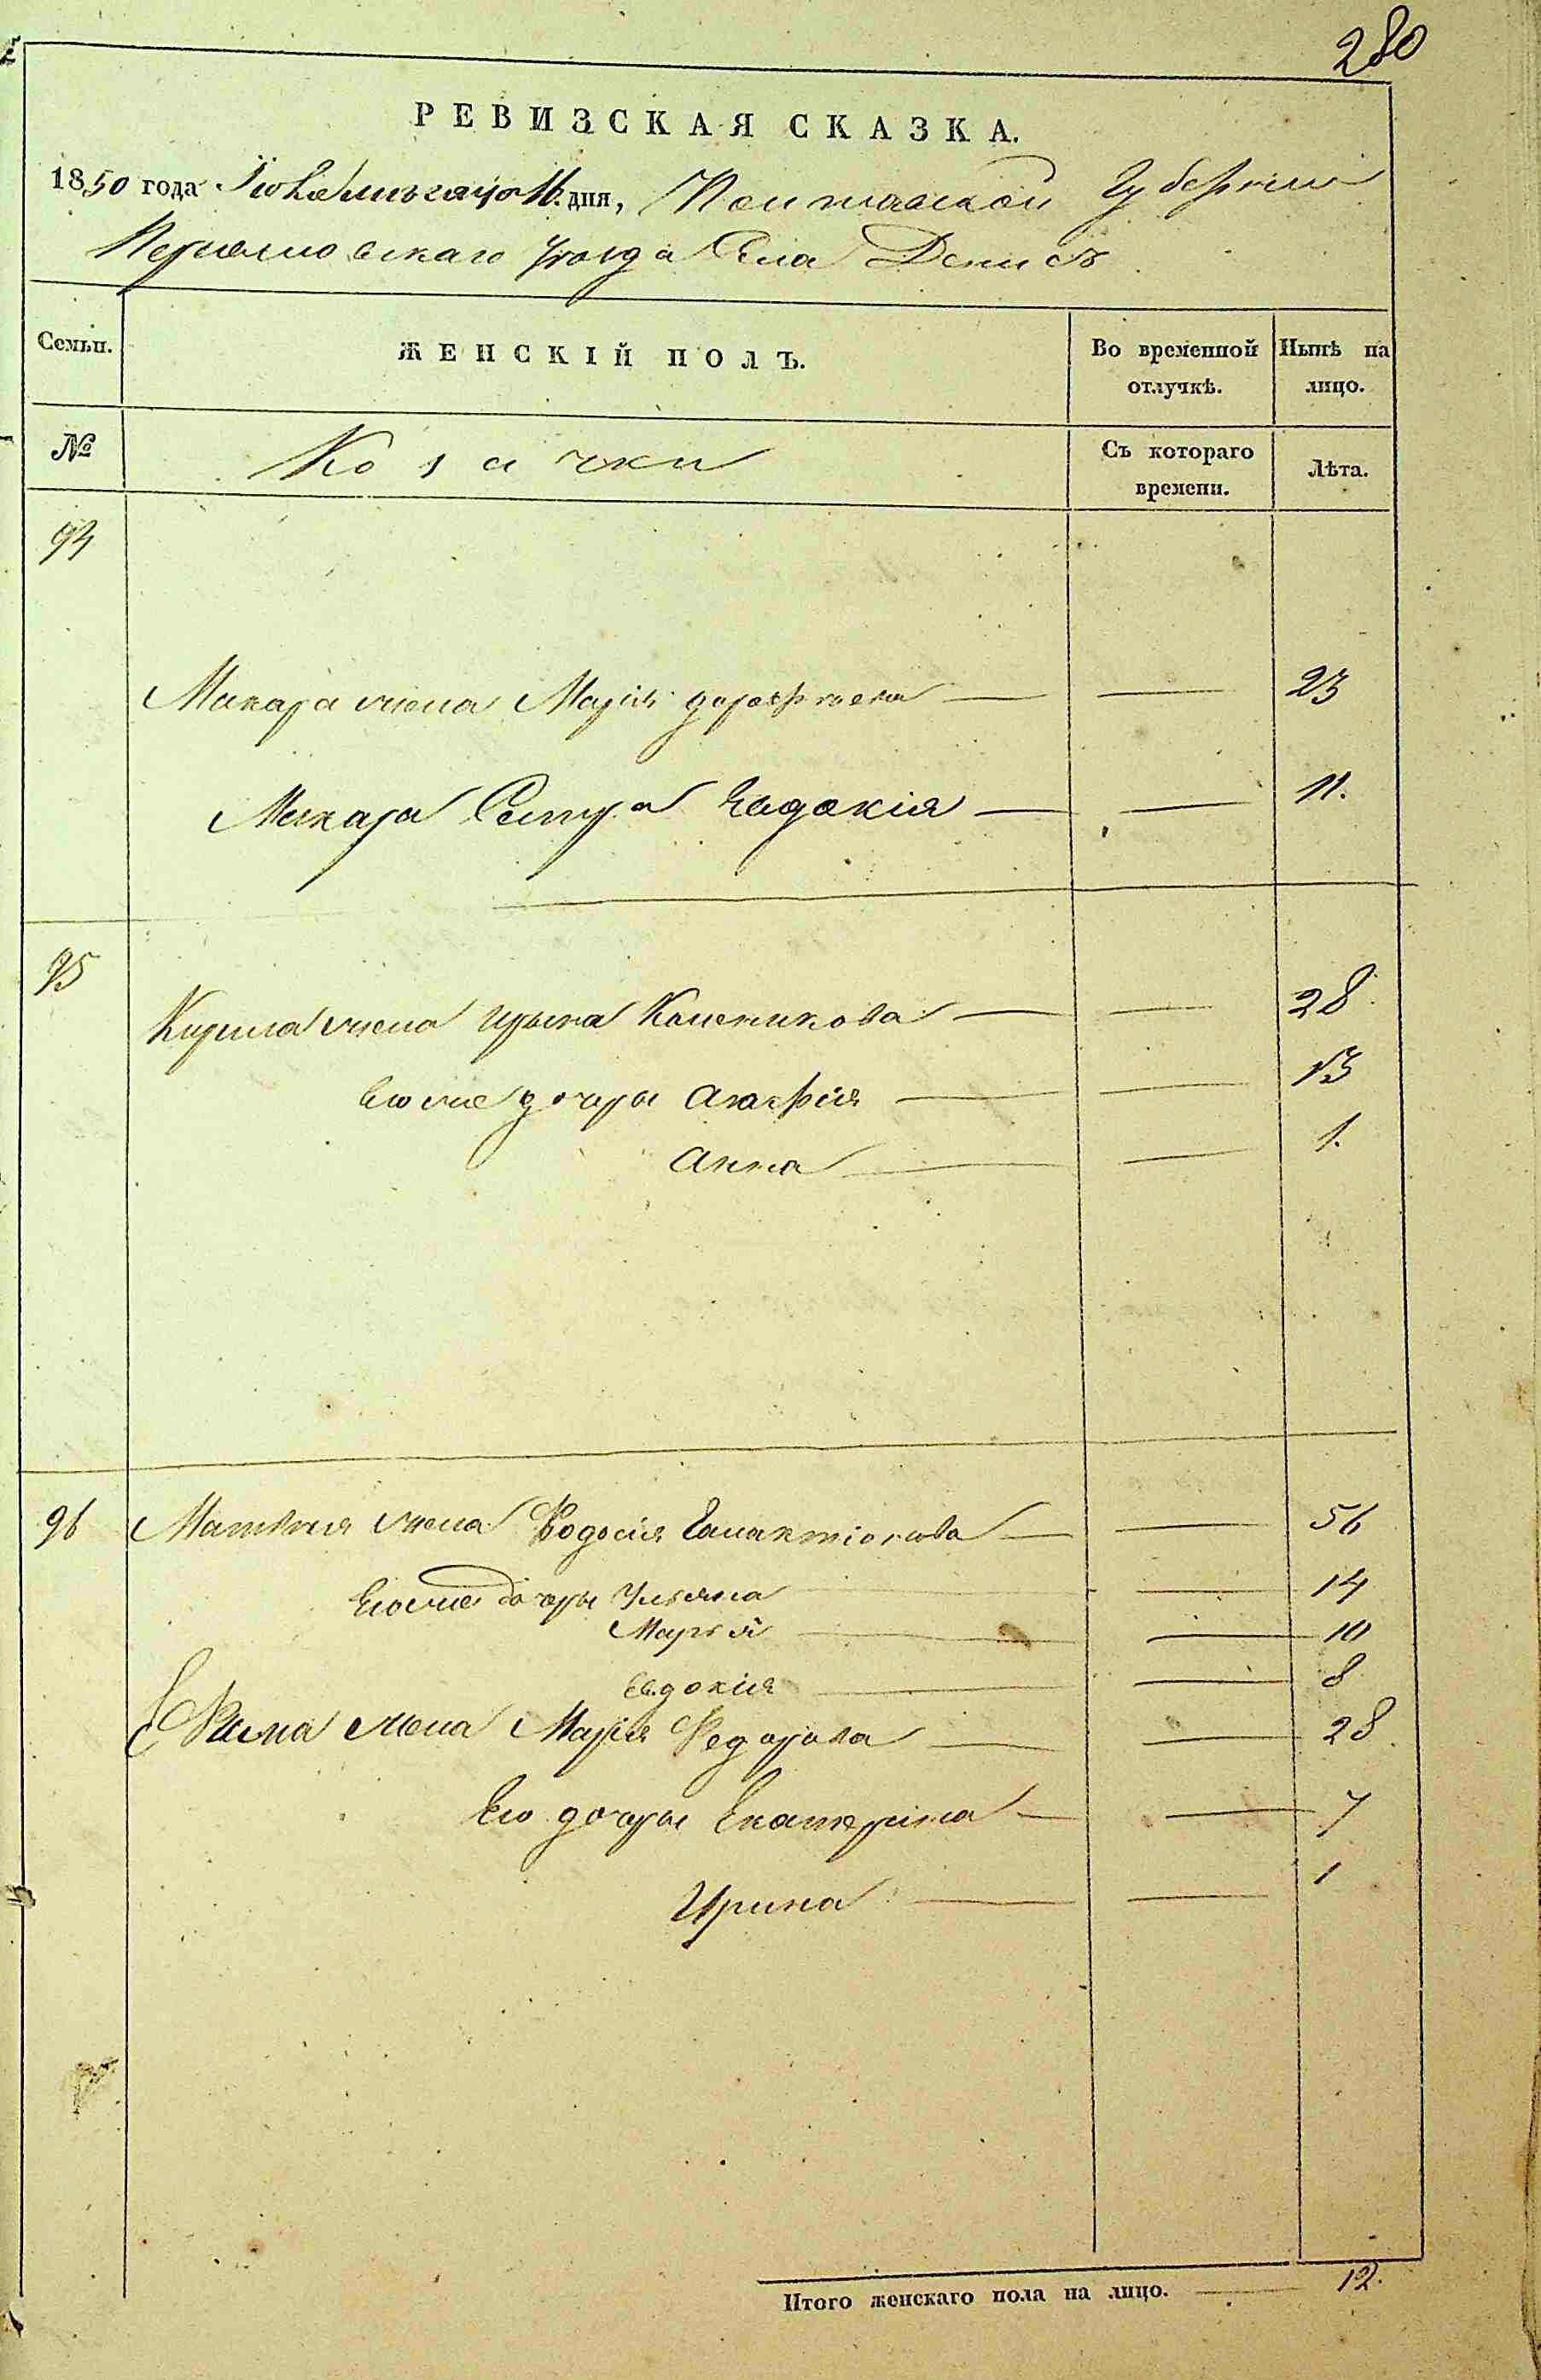 280
РЕВИЗСКАЯ СКАЗКА.
1850 года дня, Полтавской Губернии
Переяславскаго уезда Села Денисъ
Семьи.
ЖЕНСКІЙ ПОЛЪ.
Во временной отлучкѣ.
Нынѣ на лицо.
№
Козачки
Съ котораго времени.
Лѣта.
94
Макара жена Марія Дорофѣева — — 23
Макара Сестра Евдокія — — 11.
95
Кирила жена Ирына Каленикова — — 28
Ево же дочери Агафія — — 13
Анна — — 1.
96 Матвѣя жена Федосія Галактіонова — — 56
Ево же дочери Ульяна — — 14
Марья — — 10
Евдокія — — 8
Ефима жена Марія Федорова — — 28
Ево дочери Екатерина — — 7
Ирина — — 1
Итого женскаго пола на лицо. — 12.